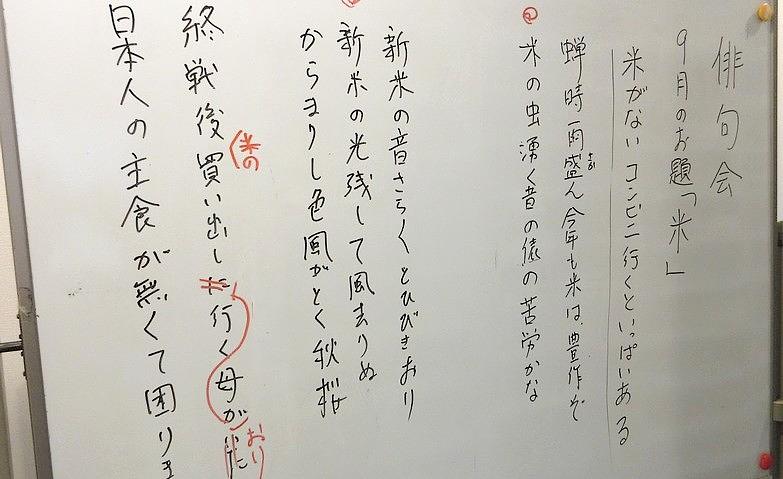 俳句会
9月のお題「米」
米がない コンビニ行くといっぱいある
蝉時雨盛ん今年も米は豊作ぞ
米の虫湧く昔の俵の苦労かな
新米の音さらくとひびきおり
新米の光残して風去りぬ
からまりし色風がとく秋桜
終戦後買い出しに行く母が
米の
おり
日本人の主食が無くて困りま